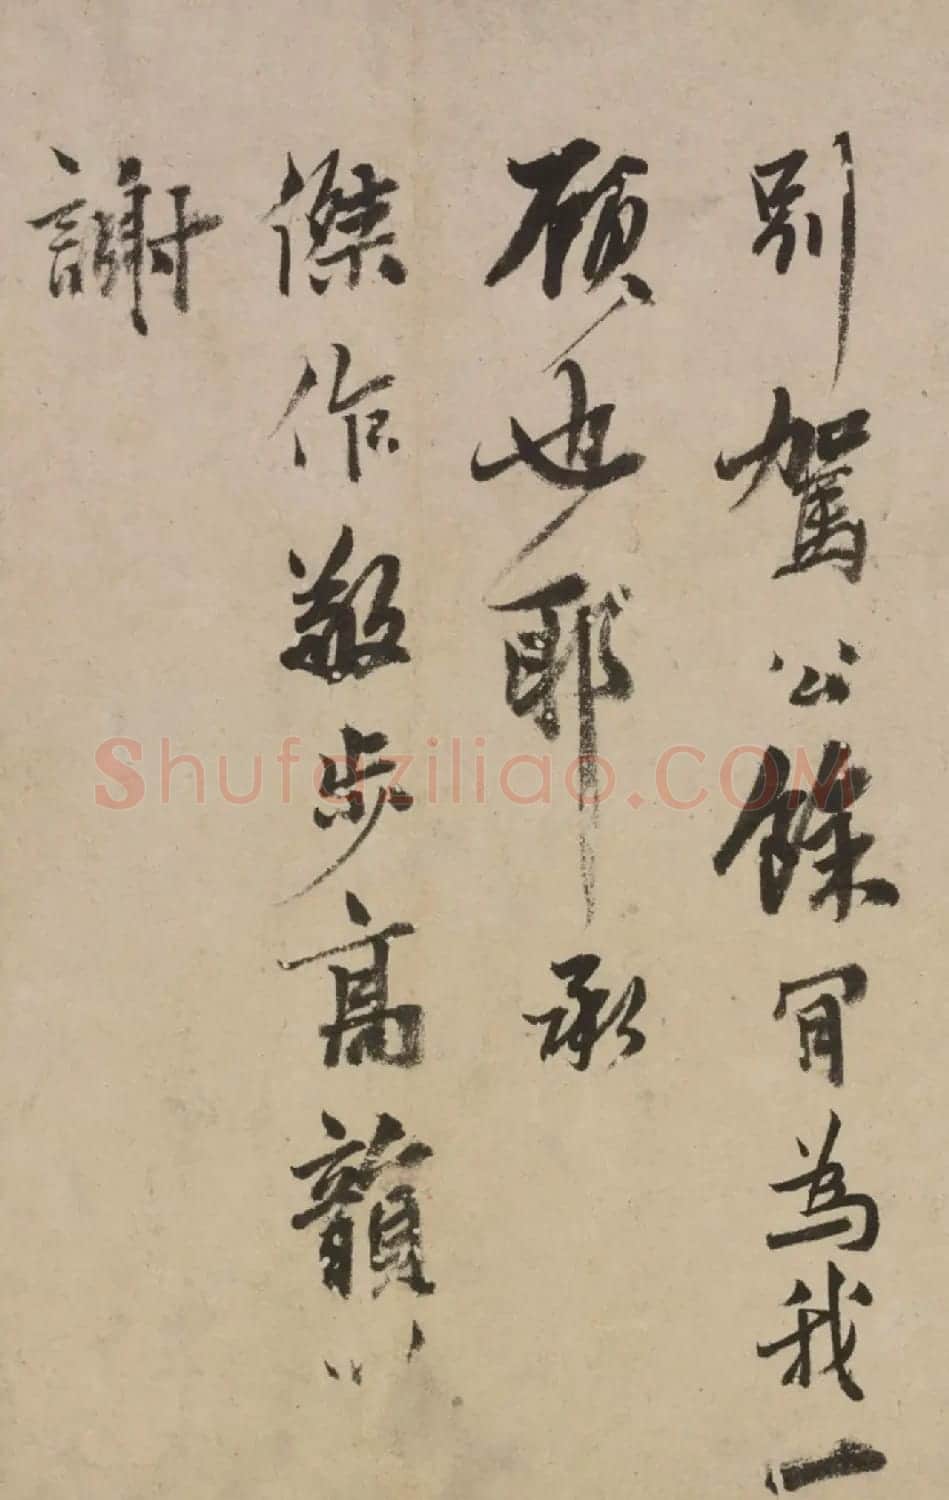 別駕公餘間為我一
顧也耶承
傑作敬步高韻以
謝
Shufaziliao.COM